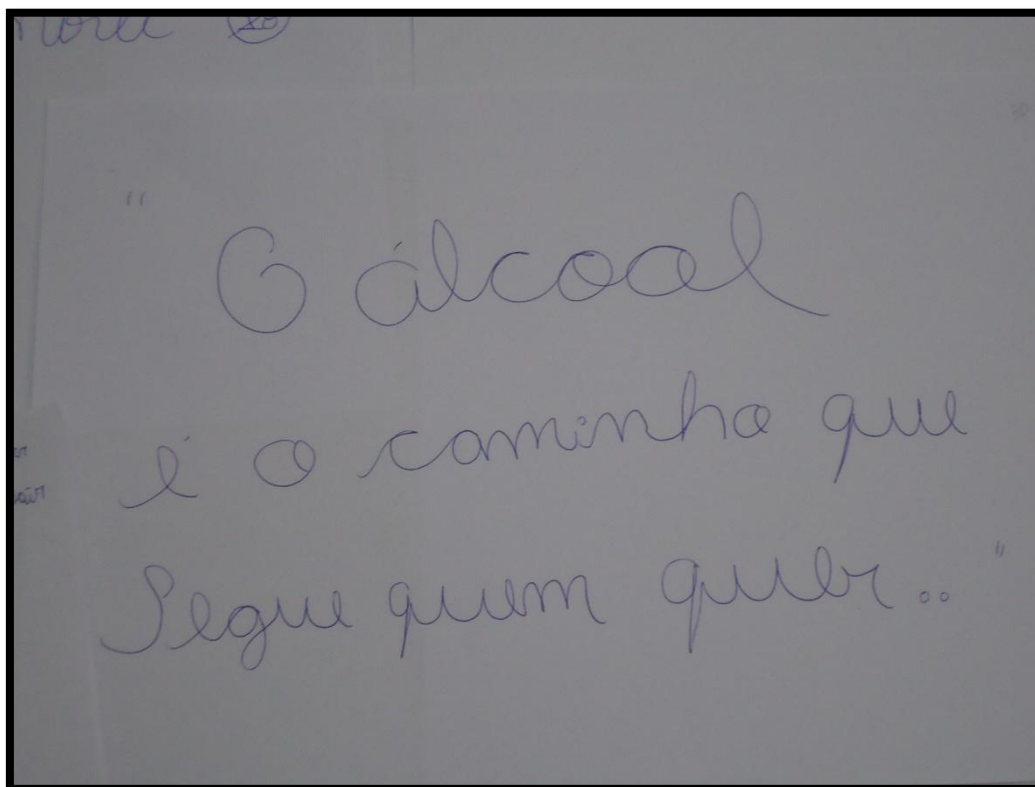 "O álcoal
é o caminho que
Segue quem quer.."